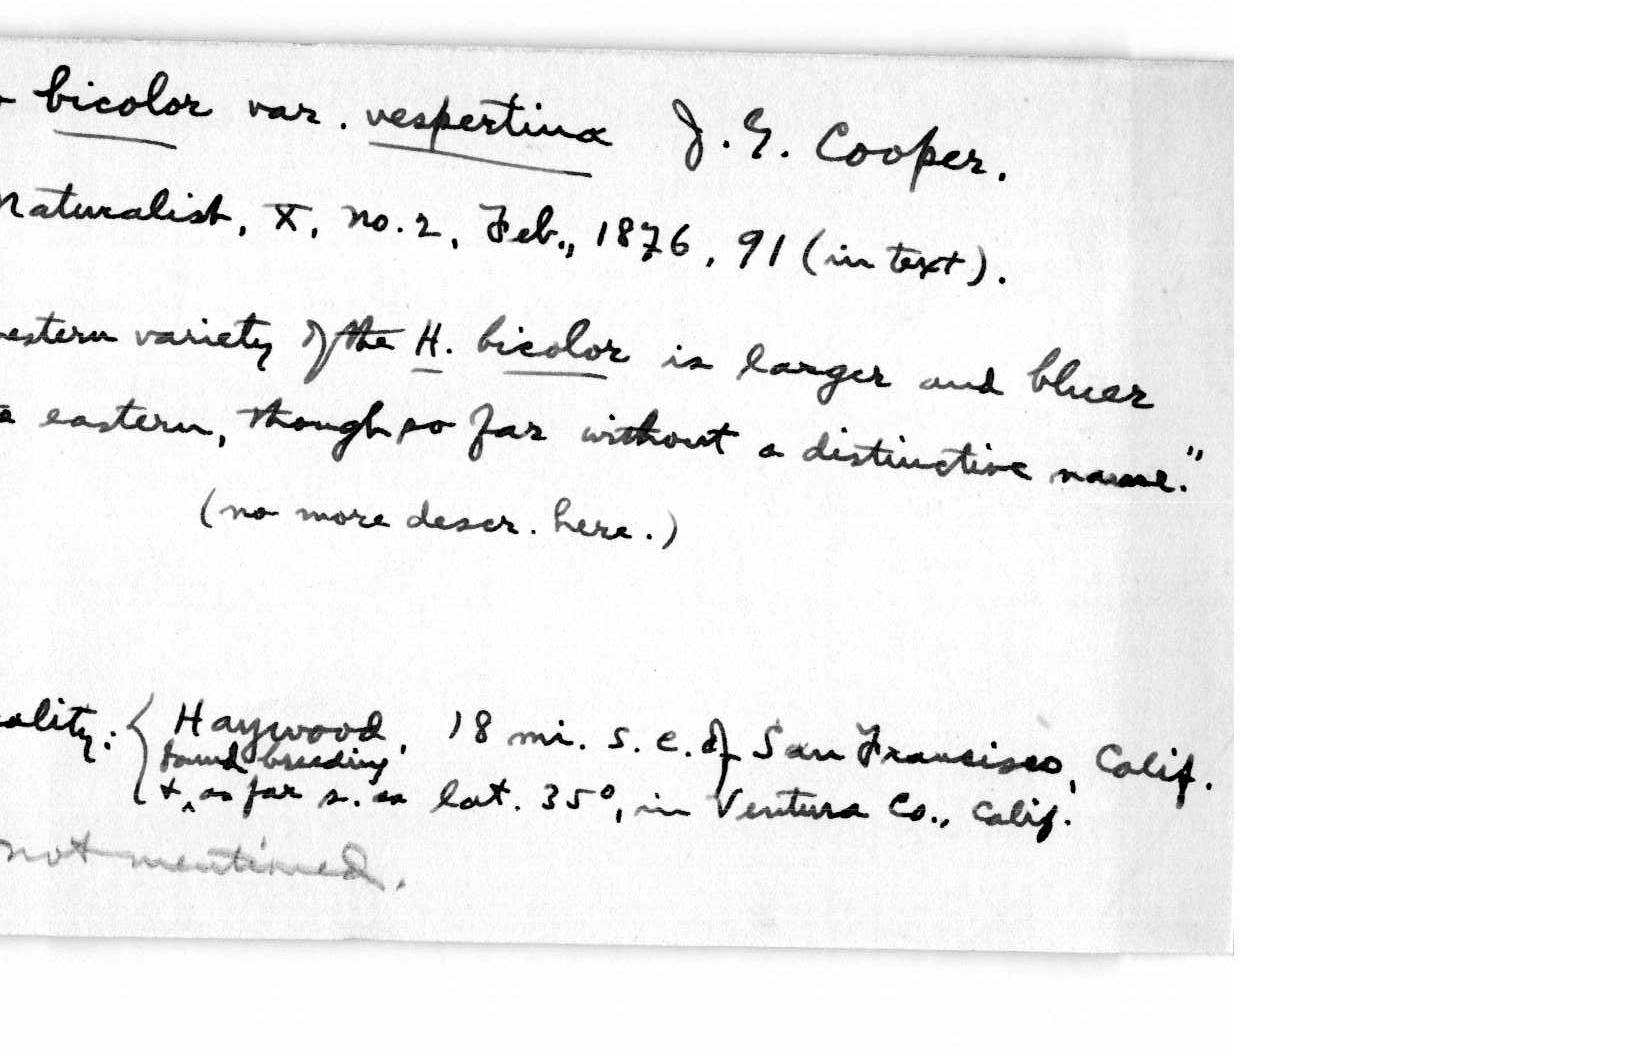 bicolor var. vespertina J. G. Cooper.
Naturalist, X, no. 2, Feb., 1876, 91 (in text).
estern variety of the H. bicolor is larger and bluer
eastern, though so far without a distinctive name."
(no more descr. here.)
ality: { Haywood, 18 mi. s. e. of San Francisco, Calif.
found breeding
+ ^ as far s. as lat. 35°, in Ventura Co., Calif.
not mentioned.